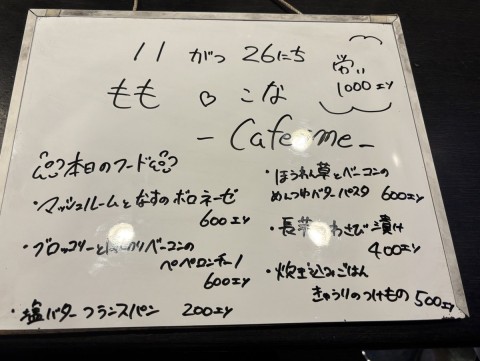 11 がつ 26にち
労い
1000エン
もも ♡ こな
- Cafe time -
本日のフード
・マッシュルームとなすのボロネーゼ
600エン
・ブロッコリーと ベーコンの
ペペロンチーノ
600エン
・塩バターフランスパン 200エン
・ほうれん草とベーコンの
めんつゆバターパスタ 600エン
・長芋のわさび漬け
400エン
・炊き込みごはん
きゅうりのつけもの 500エン